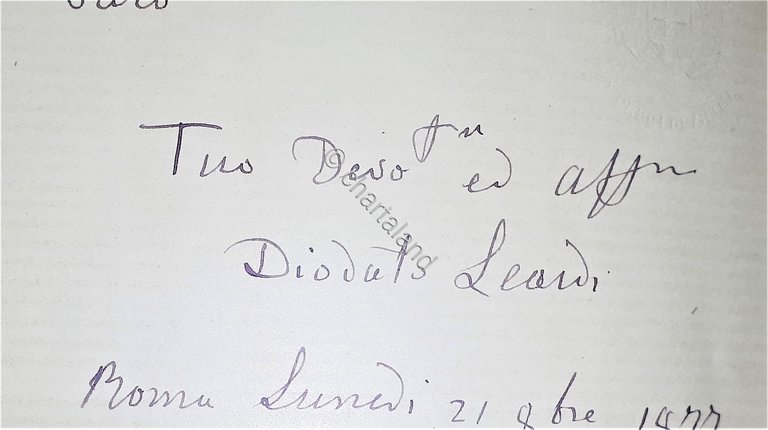 Tuo Devo fm ed affm
Diodato Leardi
Roma Lunedì 21 8bre
©chartaland